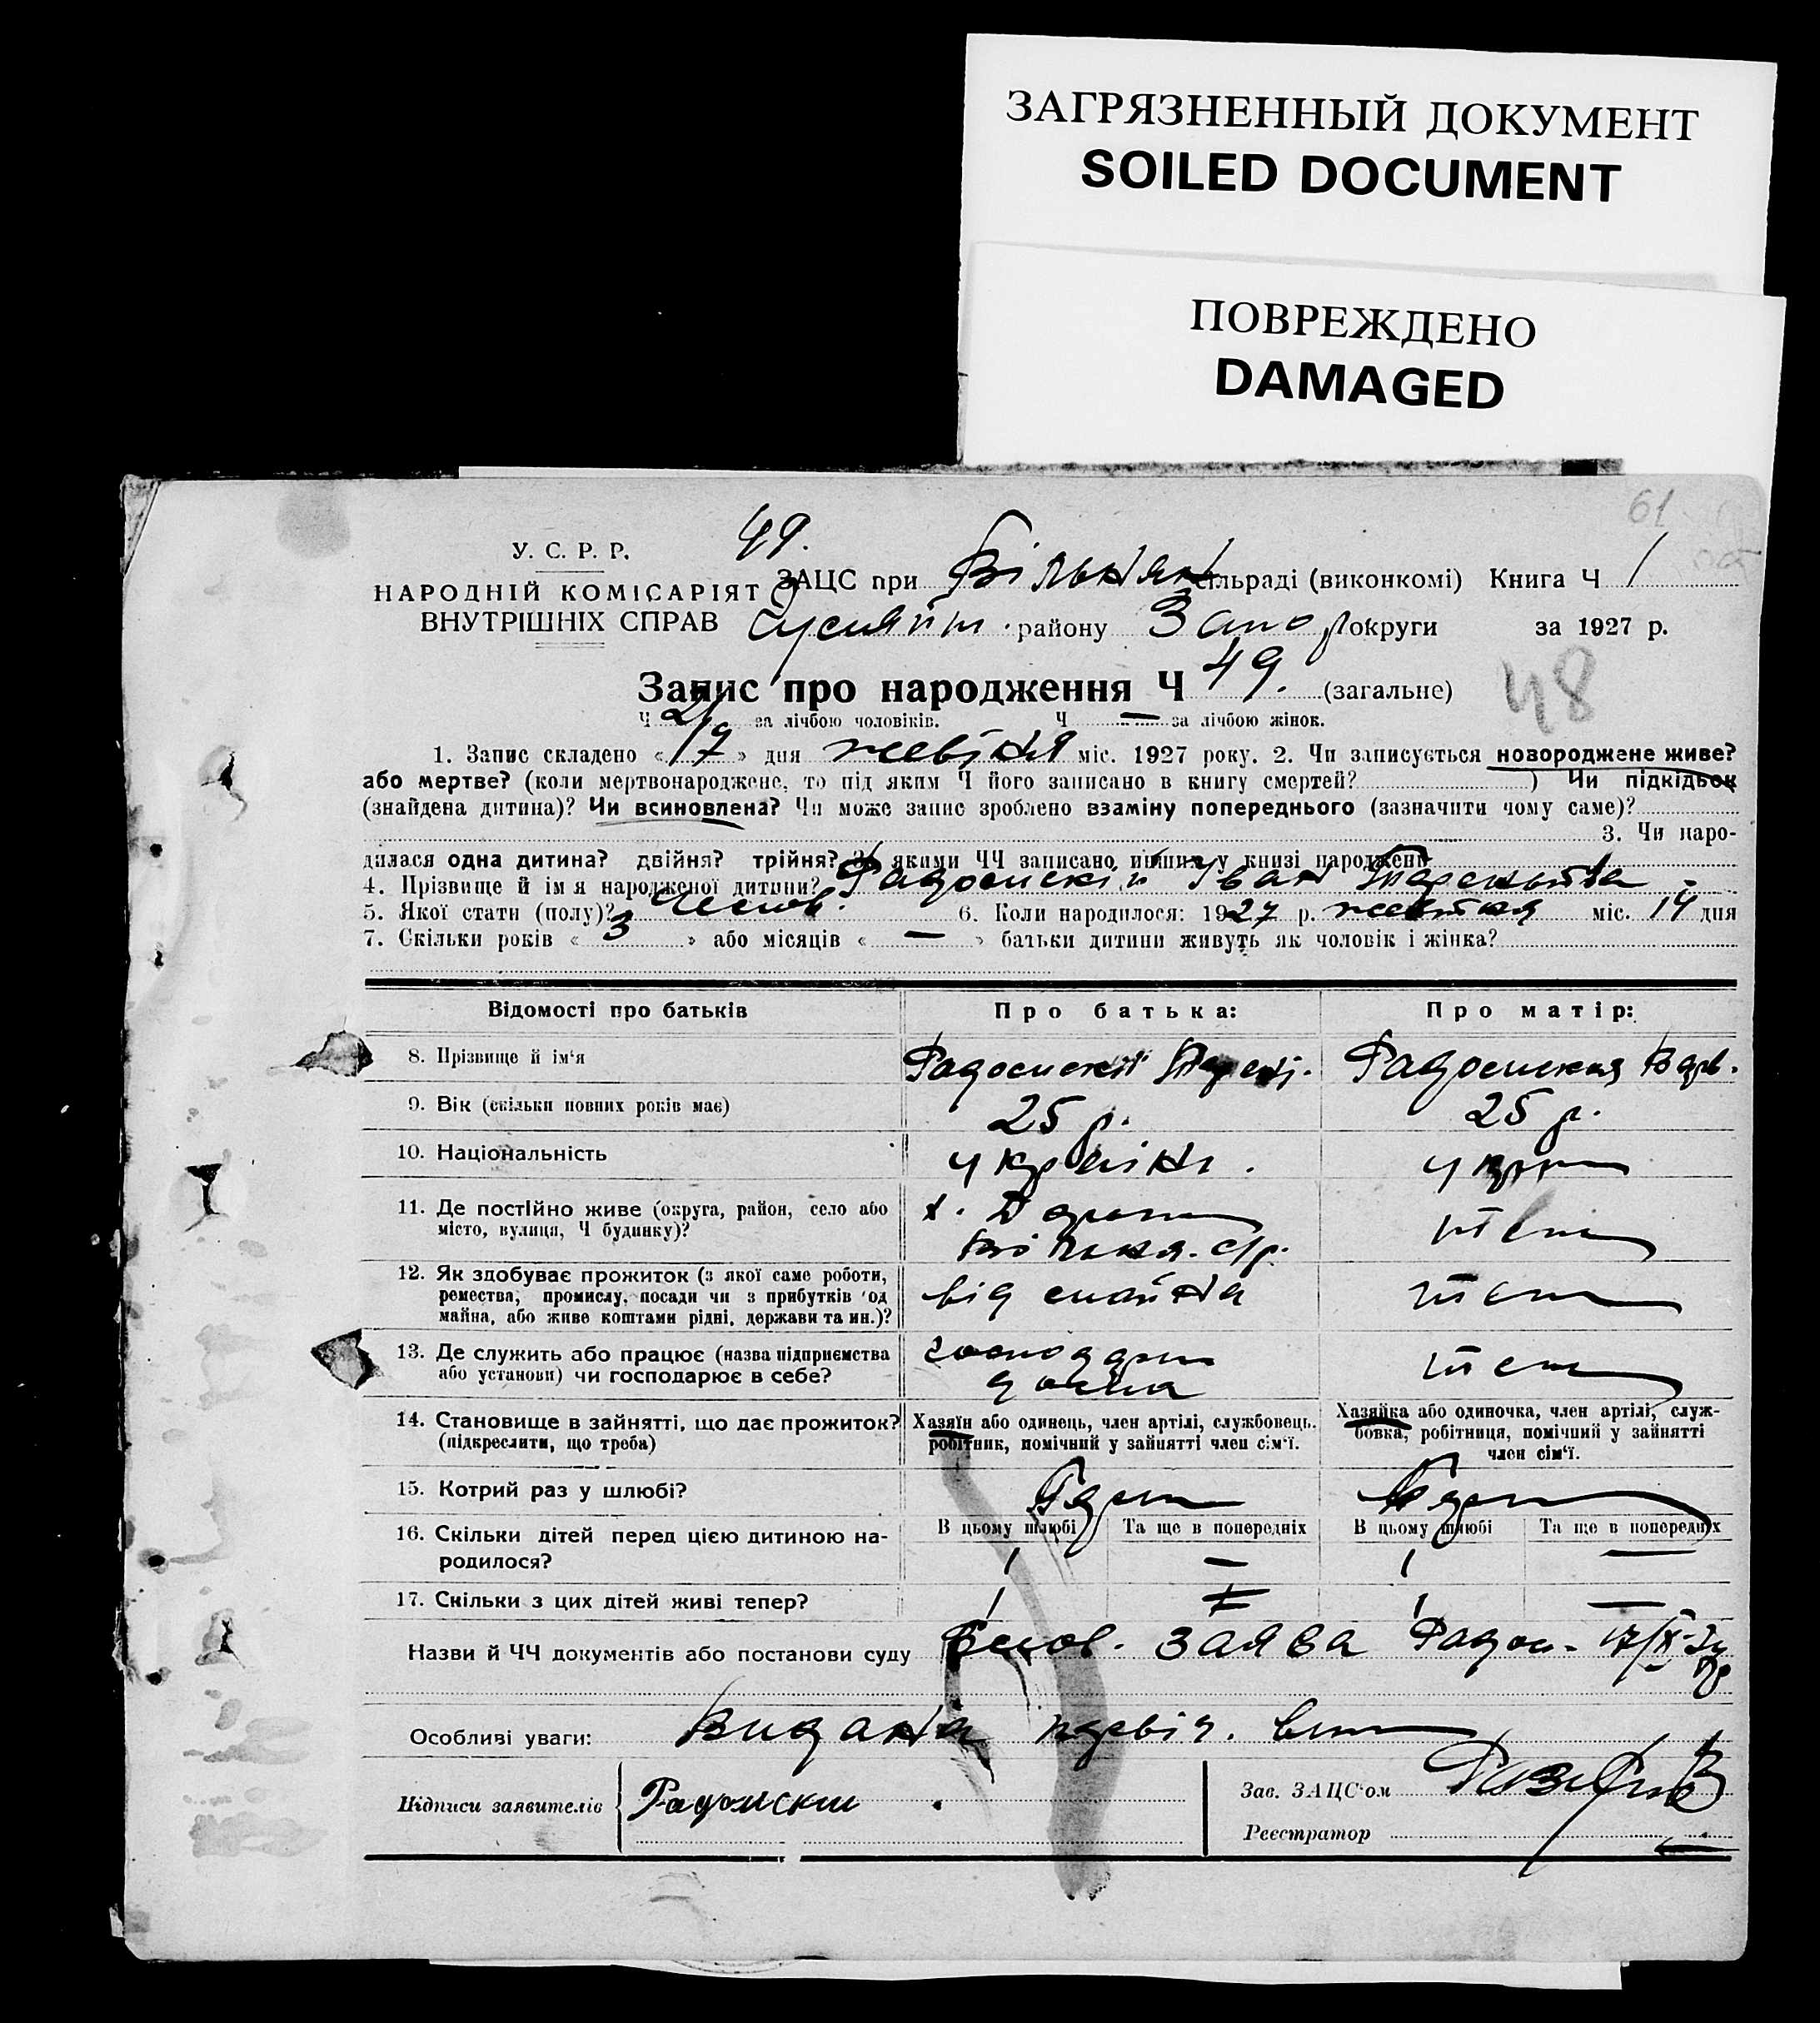 ЗАГРЯЗНЕННЫЙ ДОКУМЕНТ
SOILED DOCUMENT
ПОВРЕЖДЕНО
DAMAGED
61
49.
У. С. Р. Р.
НАРОДНІЙ КОМІСАРІЯТ
ВНУТРІШНІХ СПРАВ
ЗАЦС при Вільнян сільраді (виконкомі) Книга Ч 1
району Запор округи за 1927 р.
Запис про народження Ч 49. (загальне)
48
Ч за лічбою чоловіків. Ч — за лічбою жінок.
1. Запис складено « 17 » дня жовтня міс. 1927 року. 2. Чи записується новороджене живе?
або мертве? (коли мертвонароджене, то під яким Ч його записано в книгу смертей? ) Чи підкідьок
(знайдена дитина)? Чи всиновлена? Чи може запис зроблено взаміну попереднього (зазначити чому саме)?
3. Чи наро-
дилася одна дитина? двійня? трійня? За якими ЧЧ записано инших у книзі народжень
4. Прізвище й ім'я народженої дитини? Радомский Іван
5. Якої стати (полу)? Чолов. 6. Коли народилося: 1927 р. жовтня міс. 14 дня
7. Скільки років « 3 » або місяців « — » батьки дитини живуть як чоловік і жінка?
Відомості про батьків Про батька: Про матір:
8. Прізвище й ім'я Радомский Терент. Радомская Варв.
9. Вік (скільки повних років має) 25 р. 25 р.
10. Національність україн. укр
11. Де постійно живе (округа, район, село або
місто, вулиця, Ч будинку)? х. Вільня. с/р. теж
12. Як здобуває прожиток (з якої саме роботи,
ремества, промислу, посади чи з прибутків од
майна, або живе коштами рідні, держави та ин.)? від майна теж
13. Де служить або працює (назва підприємства
або установи) чи господарює в себе? господар дома теж
14. Становище в зайнятті, що дає прожиток?
(підкреслити, що треба)
Хазяїн або одинець, член артілі, службовець.
робітник, помічний у зайнятті член сім'ї.
Хазяйка або одиночка, член артілі, служ-
бовка, робітниця, помічний у зайнятті
член сім'ї.
15. Котрий раз у шлюбі? Перш Перш
16. Скільки дітей перед цією дитиною на-
родилося?
В цьому шлюбі Та ще в попередніх В цьому шлюбі Та ще в попередніх
1 — 1 —
17. Скільки з цих дітей живі тепер? 1 — 1 —
Назви й ЧЧ документів або постанови суду заява Радом
Особливі уваги: Видана
Підписи заявителів Радомский
Зав. ЗАЦС'ом
Реєстратор